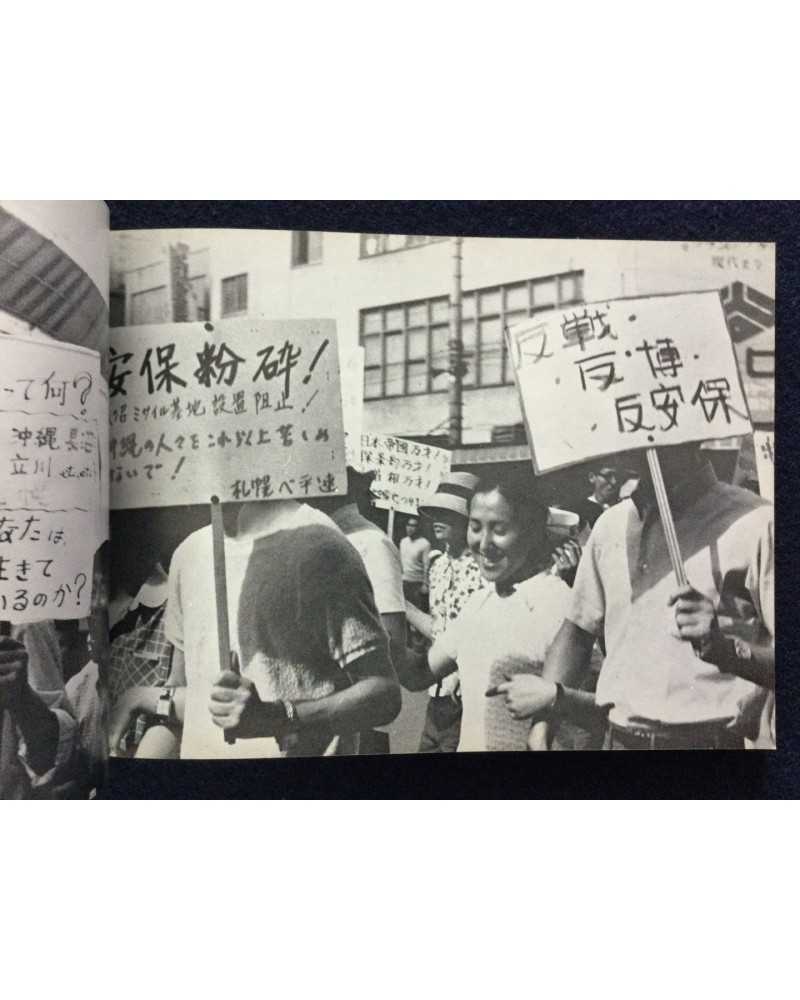 って何?
沖縄 長沼
立川 etc.
なたは、
生きて
いるのか?
安保粉砕!
沼ミサイル基地設置阻止!
沖縄の人々をこれ以上苦しめ
ないで!
札幌ベ平連
日本帝國万才!
保条約万才!
首相万才!
反戦・
反・博・
反安保
現代まん